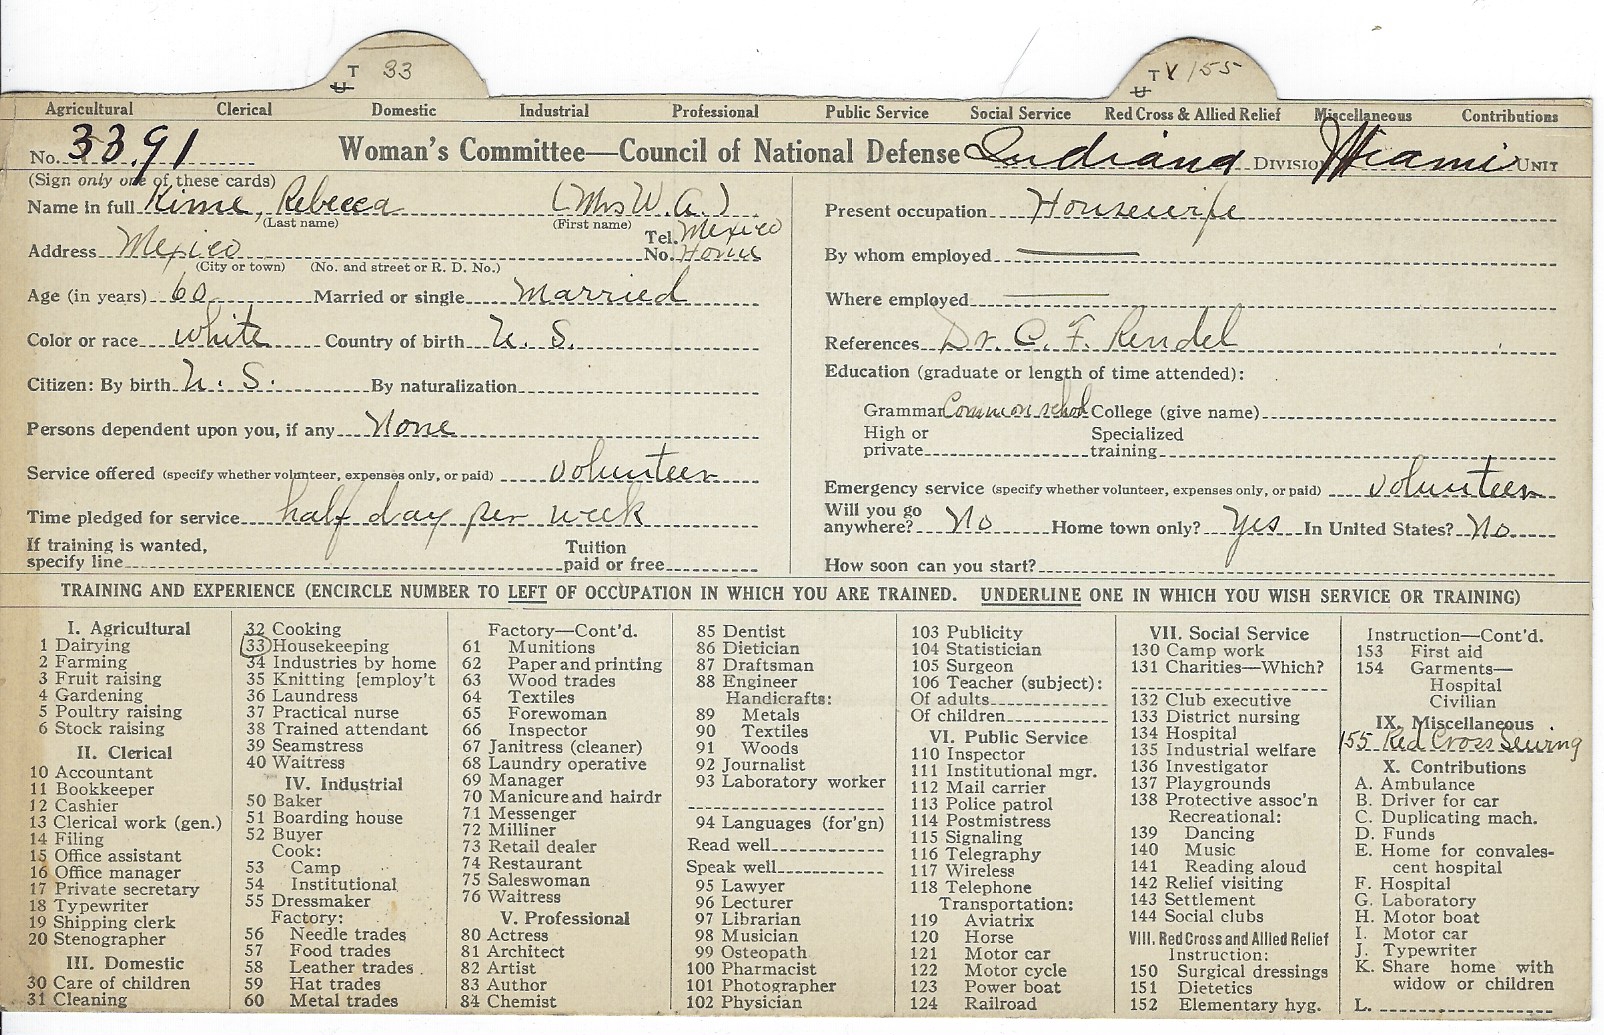 T 33
U
T V 155
U
Agricultural Clerical Domestic Industrial Professional Public Service Social Service Red Cross & Allied Relief Miscellaneous Contributions
No. 3391 Woman's Committee—Council of National Defense Indiana Division Miami Unit
(Sign only one of these cards)
Name in full Kime, Rebecca (Mrs W. A.)
(Last name) (First name)
Address Mexico Tel. No. Mexico Home
(City or town) (No. and street or R. D. No.)
Age (in years) 60 Married or single Married
Color or race white Country of birth U. S.
Citizen: By birth U. S. By naturalization
Persons dependent upon you, if any None
Service offered (specify whether volunteer, expenses only, or paid) volunteer
Time pledged for service half day per week
If training is wanted,
specify line Tuition paid or free
Present occupation Housewife
By whom employed
Where employed
References Dr. C. F. Rendel
Education (graduate or length of time attended):
Grammar Common school College (give name)
High or private Specialized training
Emergency service (specify whether volunteer, expenses only, or paid) volunteer
Will you go anywhere? No Home town only? Yes In United States? No
How soon can you start?
TRAINING AND EXPERIENCE (ENCIRCLE NUMBER TO LEFT OF OCCUPATION IN WHICH YOU ARE TRAINED. UNDERLINE ONE IN WHICH YOU WISH SERVICE OR TRAINING)
I. Agricultural
1 Dairying
2 Farming
3 Fruit raising
4 Gardening
5 Poultry raising
6 Stock raising
II. Clerical
10 Accountant
11 Bookkeeper
12 Cashier
13 Clerical work (gen.)
14 Filing
15 Office assistant
16 Office manager
17 Private secretary
18 Typewriter
19 Shipping clerk
20 Stenographer
III. Domestic
30 Care of children
31 Cleaning
32 Cooking
33 Housekeeping
34 Industries by home
35 Knitting [employ't
36 Laundress
37 Practical nurse
38 Trained attendant
39 Seamstress
40 Waitress
IV. Industrial
50 Baker
51 Boarding house
52 Buyer
Cook:
53 Camp
54 Institutional
55 Dressmaker
Factory:
56 Needle trades
57 Food trades
58 Leather trades
59 Hat trades
60 Metal trades
Factory—Cont'd.
61 Munitions
62 Paper and printing
63 Wood trades
64 Textiles
65 Forewoman
66 Inspector
67 Janitress (cleaner)
68 Laundry operative
69 Manager
70 Manicure and hairdr
71 Messenger
72 Milliner
73 Retail dealer
74 Restaurant
75 Saleswoman
76 Waitress
V. Professional
80 Actress
81 Architect
82 Artist
83 Author
84 Chemist
85 Dentist
86 Dietician
87 Draftsman
88 Engineer
Handicrafts:
89 Metals
90 Textiles
91 Woods
92 Journalist
93 Laboratory worker
94 Languages (for'gn)
Read well
Speak well
95 Lawyer
96 Lecturer
97 Librarian
98 Musician
99 Osteopath
100 Pharmacist
101 Photographer
102 Physician
103 Publicity
104 Statistician
105 Surgeon
106 Teacher (subject):
Of adults
Of children
VI. Public Service
110 Inspector
111 Institutional mgr.
112 Mail carrier
113 Police patrol
114 Postmistress
115 Signaling
116 Telegraphy
117 Wireless
118 Telephone
Transportation:
119 Aviatrix
120 Horse
121 Motor car
122 Motor cycle
123 Power boat
124 Railroad
VII. Social Service
130 Camp work
131 Charities—Which?
132 Club executive
133 District nursing
134 Hospital
135 Industrial welfare
136 Investigator
137 Playgrounds
138 Protective assoc'n
Recreational:
139 Dancing
140 Music
141 Reading aloud
142 Relief visiting
143 Settlement
144 Social clubs
VIII. Red Cross and Allied Relief
Instruction:
150 Surgical dressings
151 Dietetics
152 Elementary hyg.
Instruction—Cont'd.
153 First aid
154 Garments—
Hospital
Civilian
IX. Miscellaneous
155 Red Cross Sewing
X. Contributions
A. Ambulance
B. Driver for car
C. Duplicating mach.
D. Funds
E. Home for convales-
cent hospital
F. Hospital
G. Laboratory
H. Motor boat
I. Motor car
J. Typewriter
K. Share home with
widow or children
L.